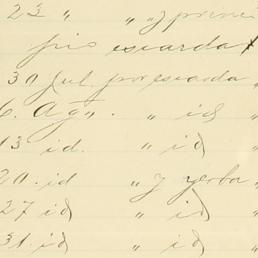 23 " " y prime
pis esuarda
30 Jul. por esuarda "
6. Ago. " id "
13 id. " id "
20. id " y yerba "
27 id " id "
31. id " id "